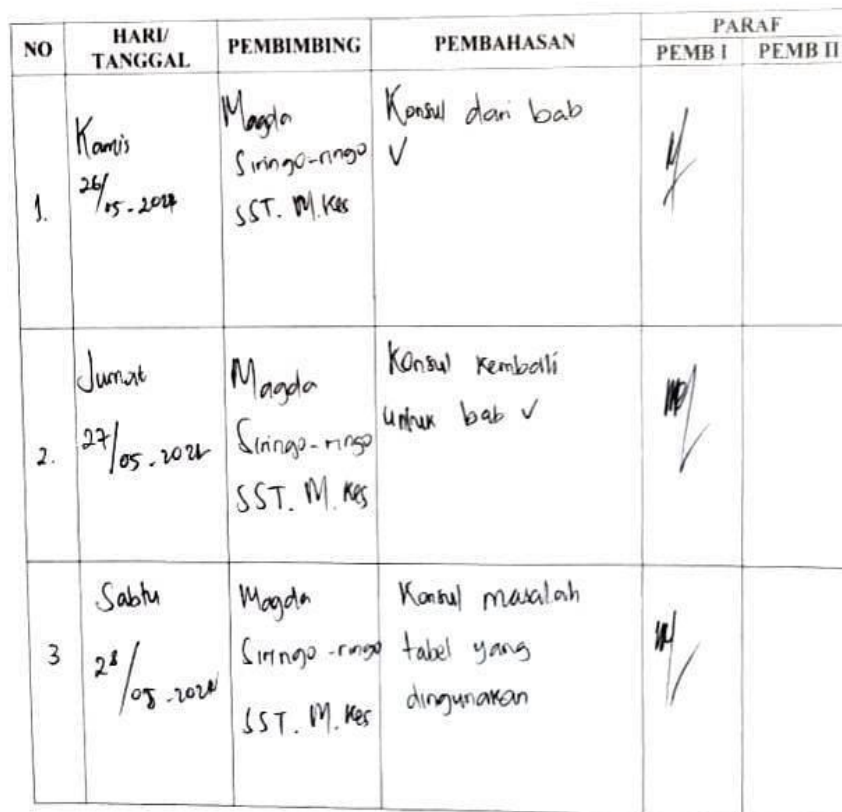 NO HARI/ TANGGAL PEMBIMBING PEMBAHASAN PARAF
PEMB I PEMB II
1.
Kamis
26/05-2022
Magda
Siringo-ringo
SST. M.Kes
Konsul dari bab
V
2.
Jumat
27/05-2022
Magda
Siringo-ringo
SST. M. Kes
Konsul Kembali
untuk bab V
3
Sabtu
28/05-2022
Magda
Siringo-ringo
SST. M. Kes
Konsul masalah
tabel yang
dingunakan